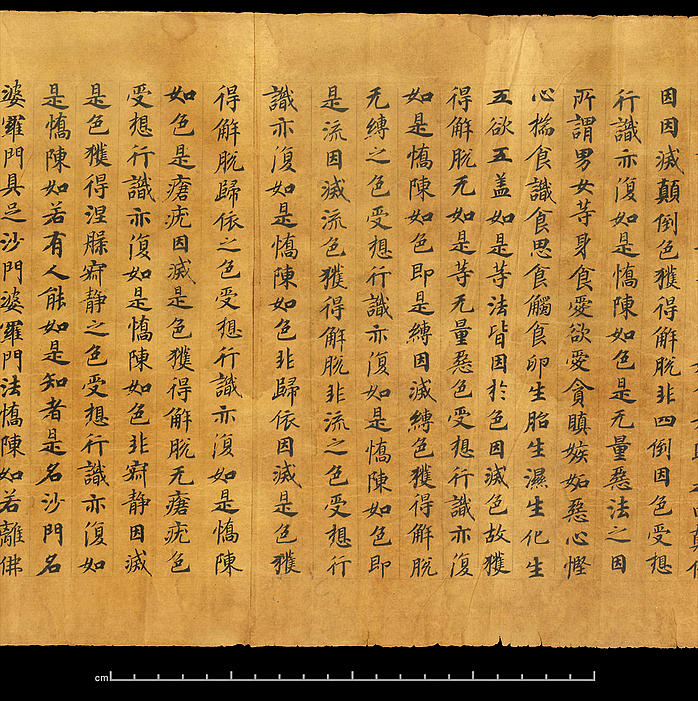 因因滅顛倒色獲得解脫非四倒因色受想
行識亦復如是憍陳如色是无量惡法之因
所謂男女等身食愛欲愛貪瞋嫉妬惡心慳
心揣食識食思食觸食卵生胎生濕生化生
五欲五盖如是等法皆因於色因滅色故獲
得解脫无如是等无量惡色受想行識亦復
如是憍陳如色即是縛因滅縛色獲得解脫
无縛之色受想行識亦復如是憍陳如色即
是流因滅流色獲得解脫非流之色受想行
識亦復如是憍陳如色非歸依因滅是色獲
得解脫歸依之色受想行識亦復如是憍陳
如色是瘡疣因滅是色獲得解脫无瘡疣色
受想行識亦復如是憍陳如色非寂静因滅
是色獲得涅槃寂静之色受想行識亦復如
是憍陳如若有人能如是知者是名沙門名
婆羅門具足沙門婆羅門法憍陳如若離佛
cm